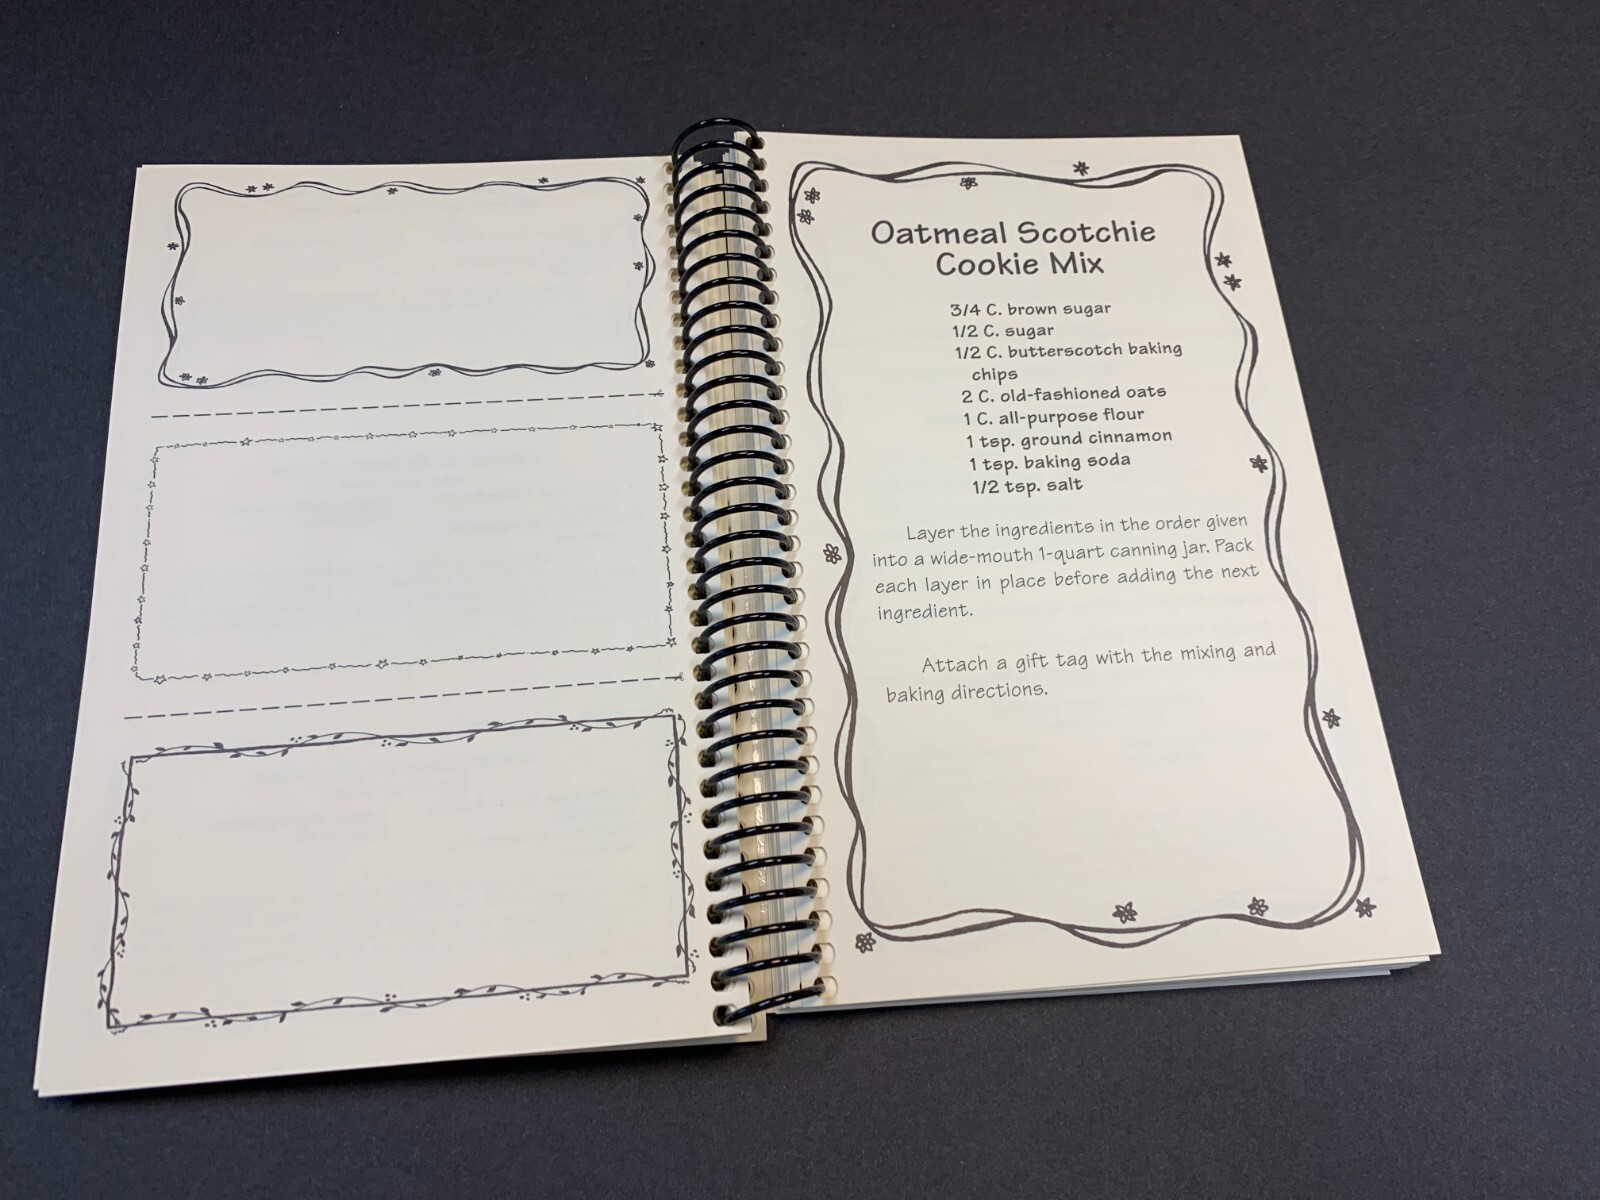 Oatmeal Scotchie
Cookie Mix
3/4 C. brown sugar
1/2 C. sugar
1/2 C. butterscotch baking
chips
2 C. old-fashioned oats
1 C. all-purpose flour
1 tsp. ground cinnamon
1 tsp. baking soda
1/2 tsp. salt
Layer the ingredients in the order given
into a wide-mouth 1-quart canning jar. Pack
each layer in place before adding the next
ingredient.
Attach a gift tag with the mixing and
baking directions.